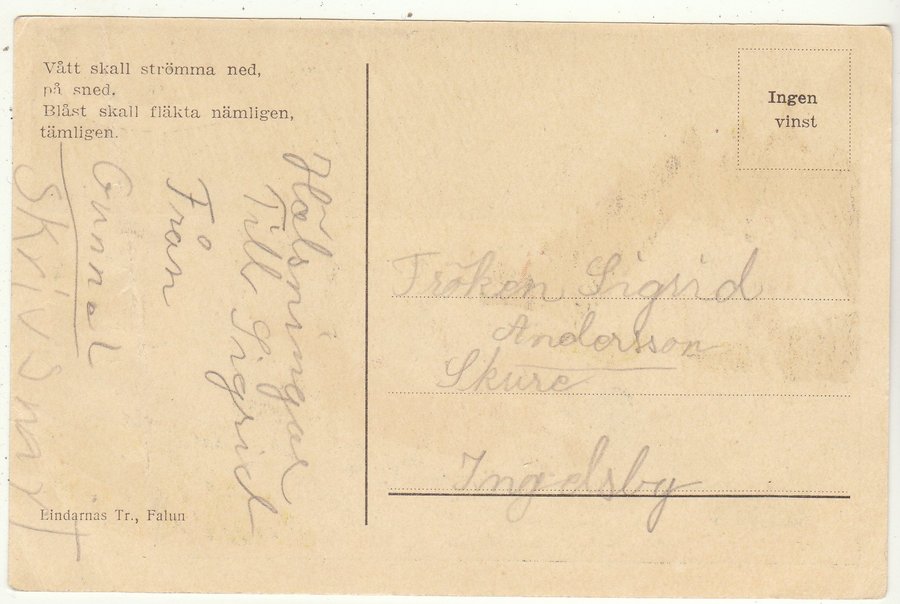 Vått skall strömma ned,
på sned.
Blåst skall fläkta nämligen,
tämligen.
Hälsningar
Till Sigrid
Från
Gunnal
Skriv snart
Lindarnas Tr., Falun
Ingen
vinst
Fröken Sigrid
Andersson
Skure
Ingelsby